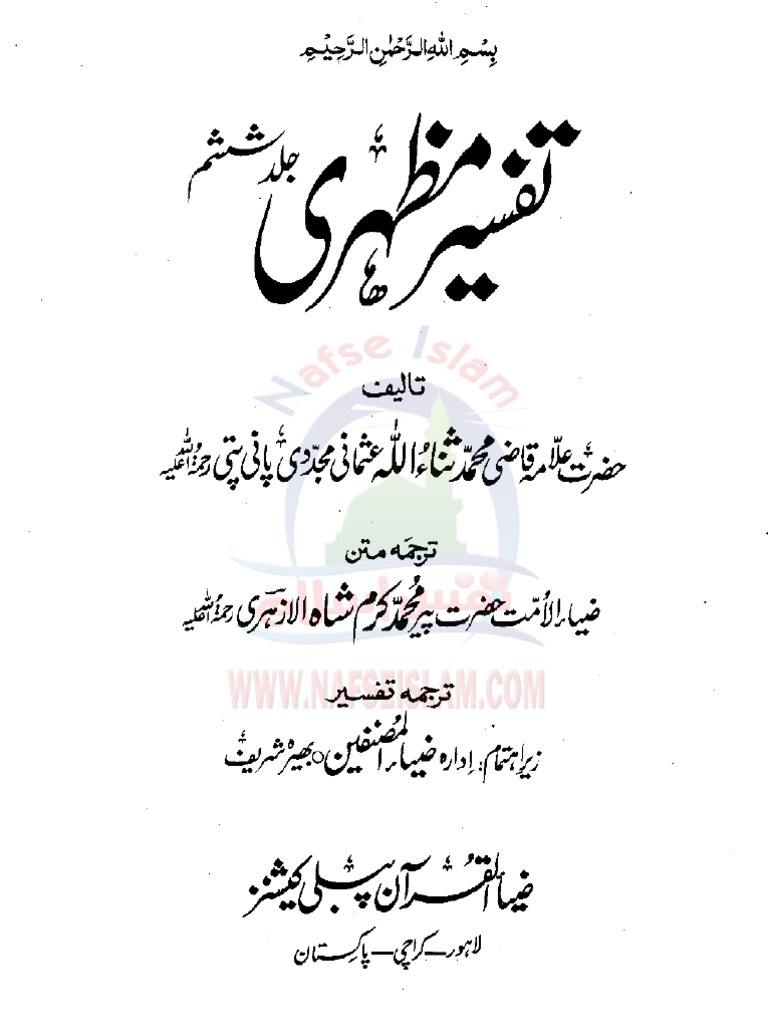 بِسْمِ اللهِ الرَّحْمٰنِ الرَّحِيْمِ
تفسیر مظہری جلد ششم
Nafse Islam
تالیف
حضرت علّامہ قاضی محمّد ثناءُ اللہ عثمانی مجدّدی پانی پتی رحمۃ اللہ علیہ
ترجمہ متن
ضیاء الاُمّت حضرت پیر محمّد کرم شاہ الازہری رحمۃ اللہ علیہ
نفس اسلام
WWW.NAFSEISLAM.COM
ترجمہ تفسیر
زیرِ اہتمام: ادارہ ضیاء المُصنفین ○ بھیرہ شریف
ضیاء القُرآن پبلی کیشنز
لاہور – کراچی – پاکستان